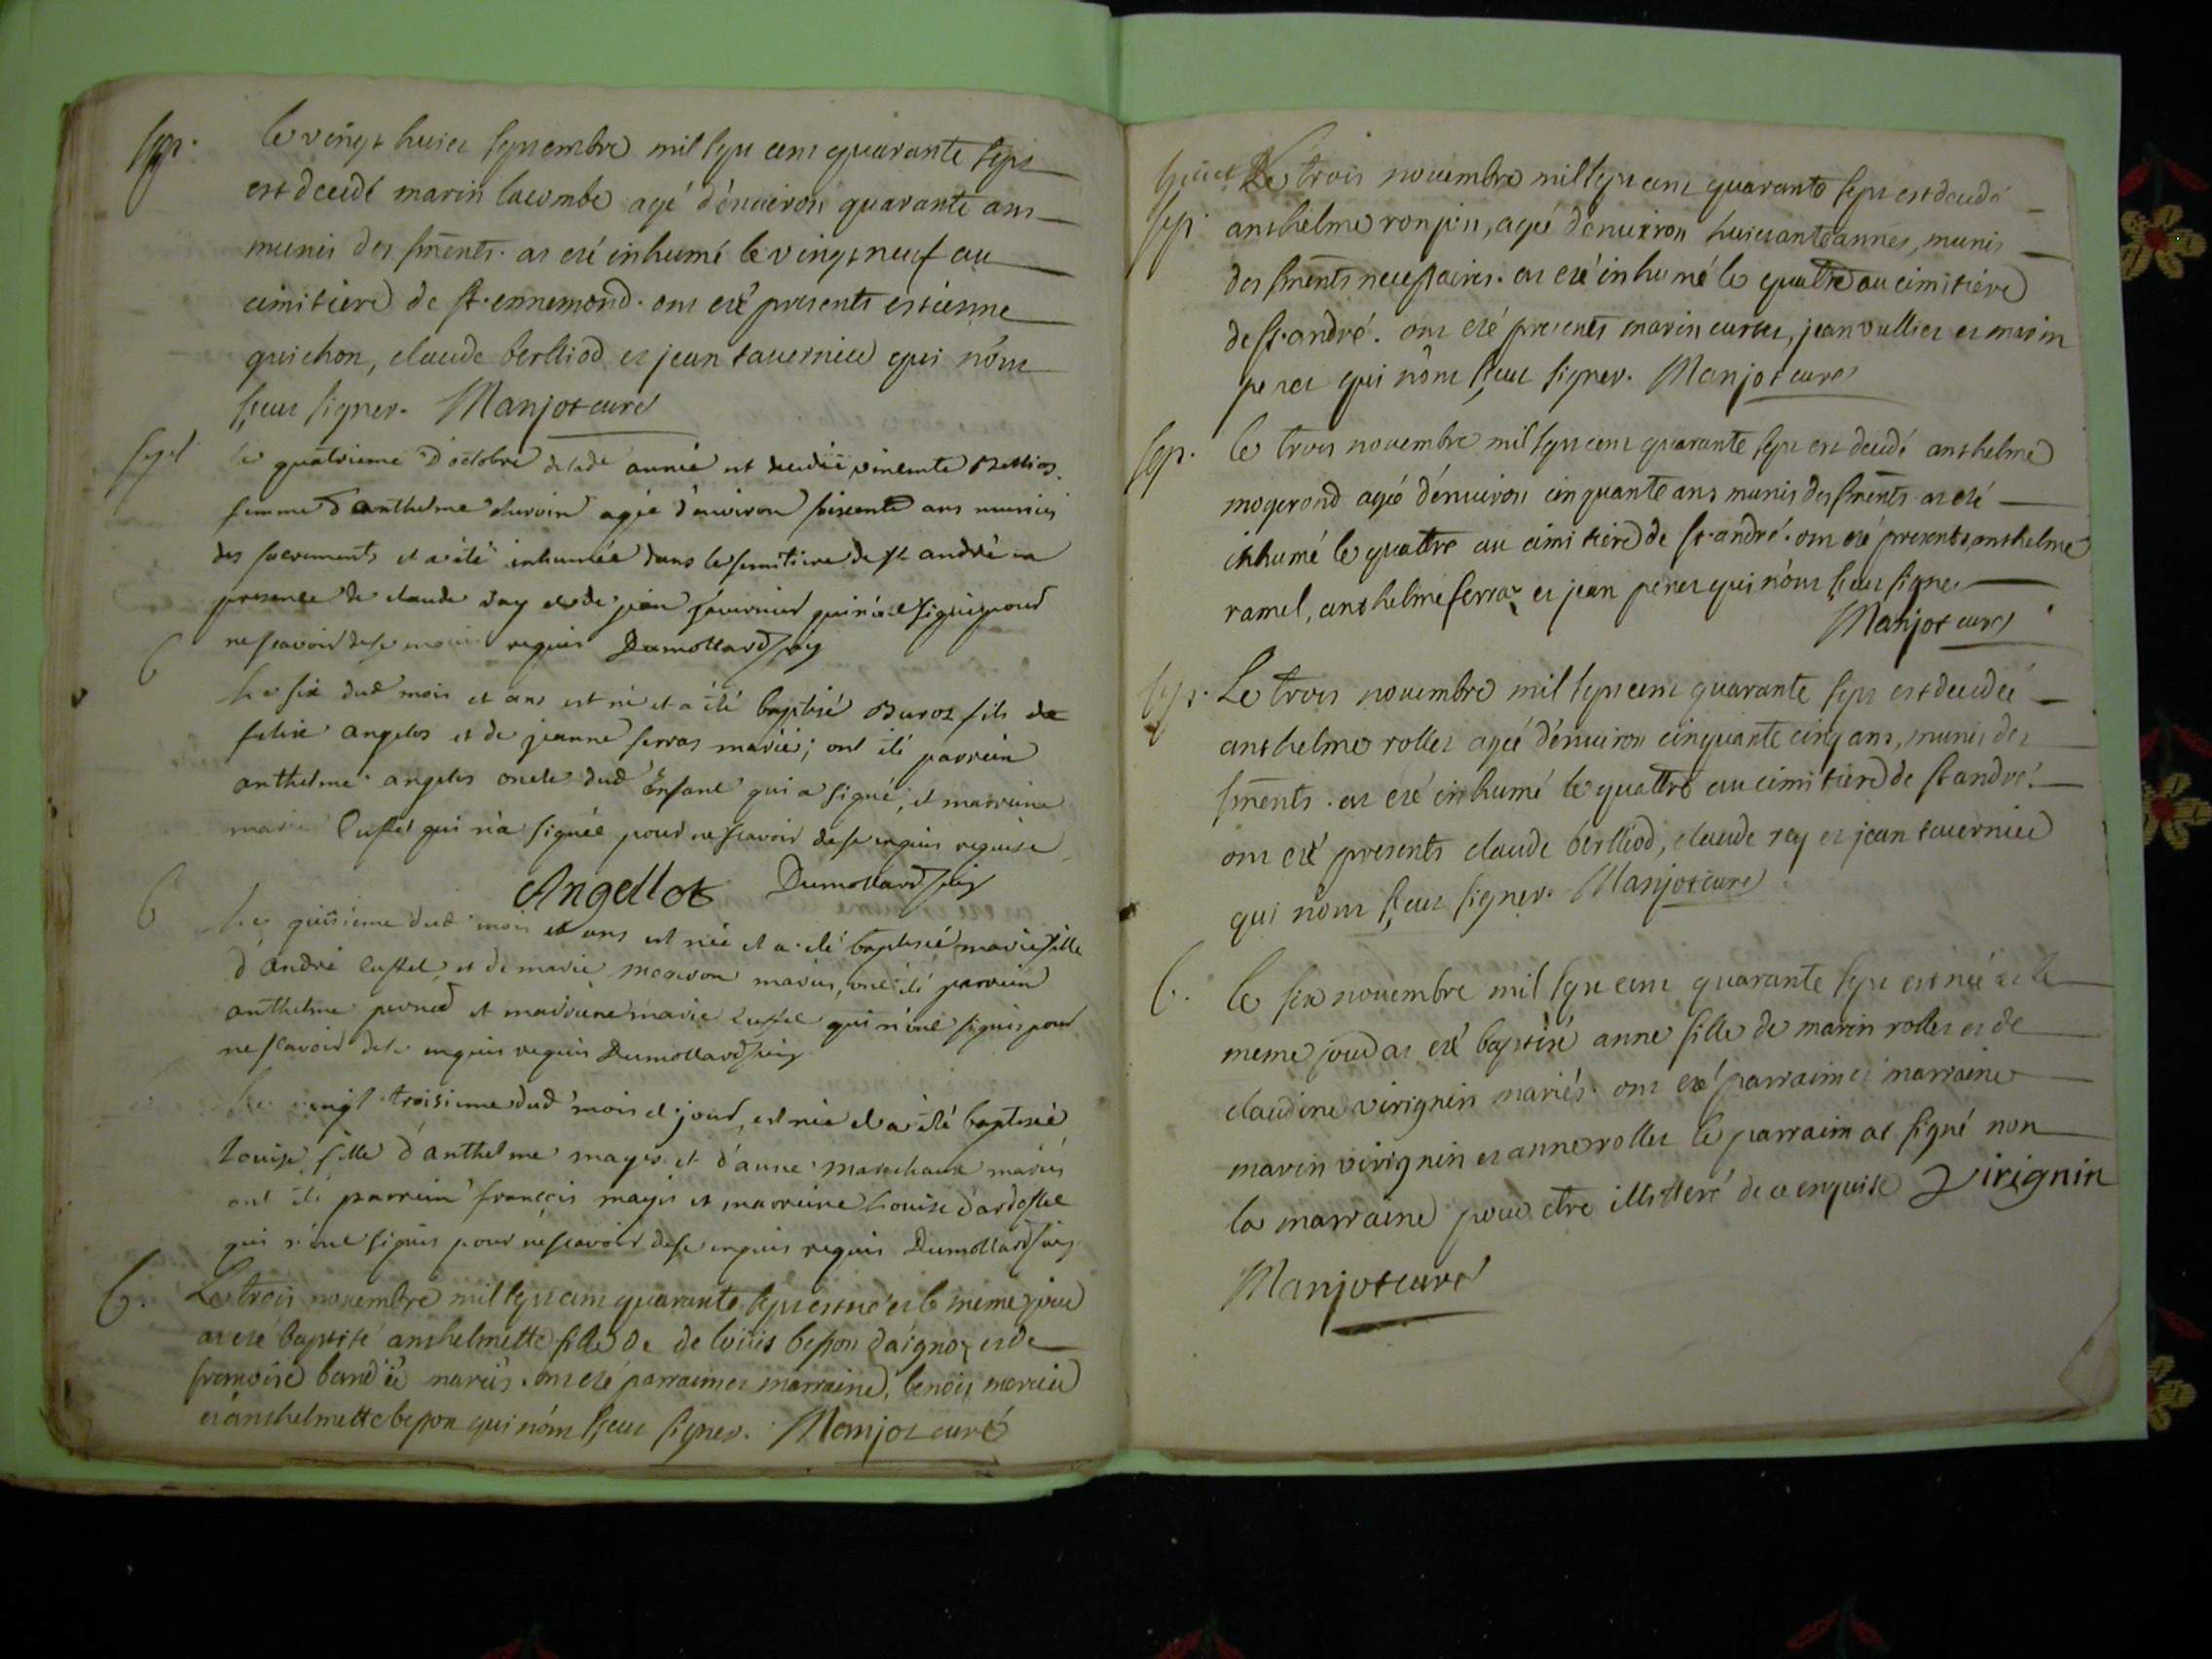 sep. le vingt huict septembre mil sept cent quarante sept
est decedé marin lacombe agé d'enuiron quarante ans
munis des sments. at eté inhumé le vingt neuf au
cimitiere de st. ennemond. ont eté presents estienne
guichon, claude berlliod et jean tauernier qui n'ont
sçeut signer. Manjot curé
sept le quatrieme d'octobre de lade année est decedée
femme d'anthelme agée d'environ soixente ans munies
des sacrements et a été inhumée dans le semitiere de st andré en
presence de claude Ray et de jean Tavernier qui n'ont signé pour
ne scavoir de se requis Dumollard
b le six dud mois et ans est né et a été baptisé fils de
felix angelos et de jeanne ferras mariés; ont été parrein
anthelme angelos oncle dud Enfant qui a signé, et marreine
marie Cusset qui n'a signée pour ne scavoir de se enquis requise
Angellot Dumollard
b le dud mois et ans est née et a été baptisée marie fille
d'andré Cusset et de marie mogeron mariés, ont été parrein
anthelme pernod et marreine marie Cusset qui n'ont signés pour
ne scavoir de se enquis requis Dumollard
le vingt troisieme dud mois et jour, est née et a été baptisée
Louise fille d'anthelme et d'anne marechaux mariés
ont été parrein françois et marreine Louise
qui n'ont signés pour ne scavoir de se enquis requis Dumollard
b. Le trois nouembre mil sept cent quarante sept est né et le meme jour
at eté baptisé anthelmette fille de de loüis besson d'aignoz et de
francoise mariés. ont eté parraim et marraine, benoit mercier
et anthelmette besson qui n'ont sçeut signer. Manjot curé
Le trois nouembre mil sept cent quarante sept est decedé
sep. anthelme ronjon, agé d'enuiron huictante années, munis
des sments necessaires. at eté inhumé le quattre au cimitiere
de st. andré. ont eté presents marin curtet, jean vullier et marin
peret qui n'ont sçeut signer. Manjot curé
sep. le trois nouembre mil sept cent quarante sept est decedé anthelme
mogerond agé d'enuiron cinquante ans munis des sments at eté
inhumé le quattre au cimitiere de st. andré. ont eté presents anthelme
ramel, anthelme ferraz et jean peret qui n'ont sçeut signer
Manjot curé
sep. Le trois nouembre mil sept cent quarante sept est decedée
anthelme rollet agé d'enuiron cinquante cinq ans, munis des
sments. at eté inhumé le quattre au cimitiere de st andré.
ont eté presents claude berlliod, claude rey et jean tauernier
qui n'ont sçeut signer. Manjot curé
b. le six nouembre mil sept cent quarante sept est née et le
meme jour at eté baptisé anne fille de marin rollet et de
claudine virignin mariés. ont eté parraim et marraine
marin virignin et anne rollet le parraim at signé non
la marraine pour etre illitteré de ce enquise Virignin
Manjot curé